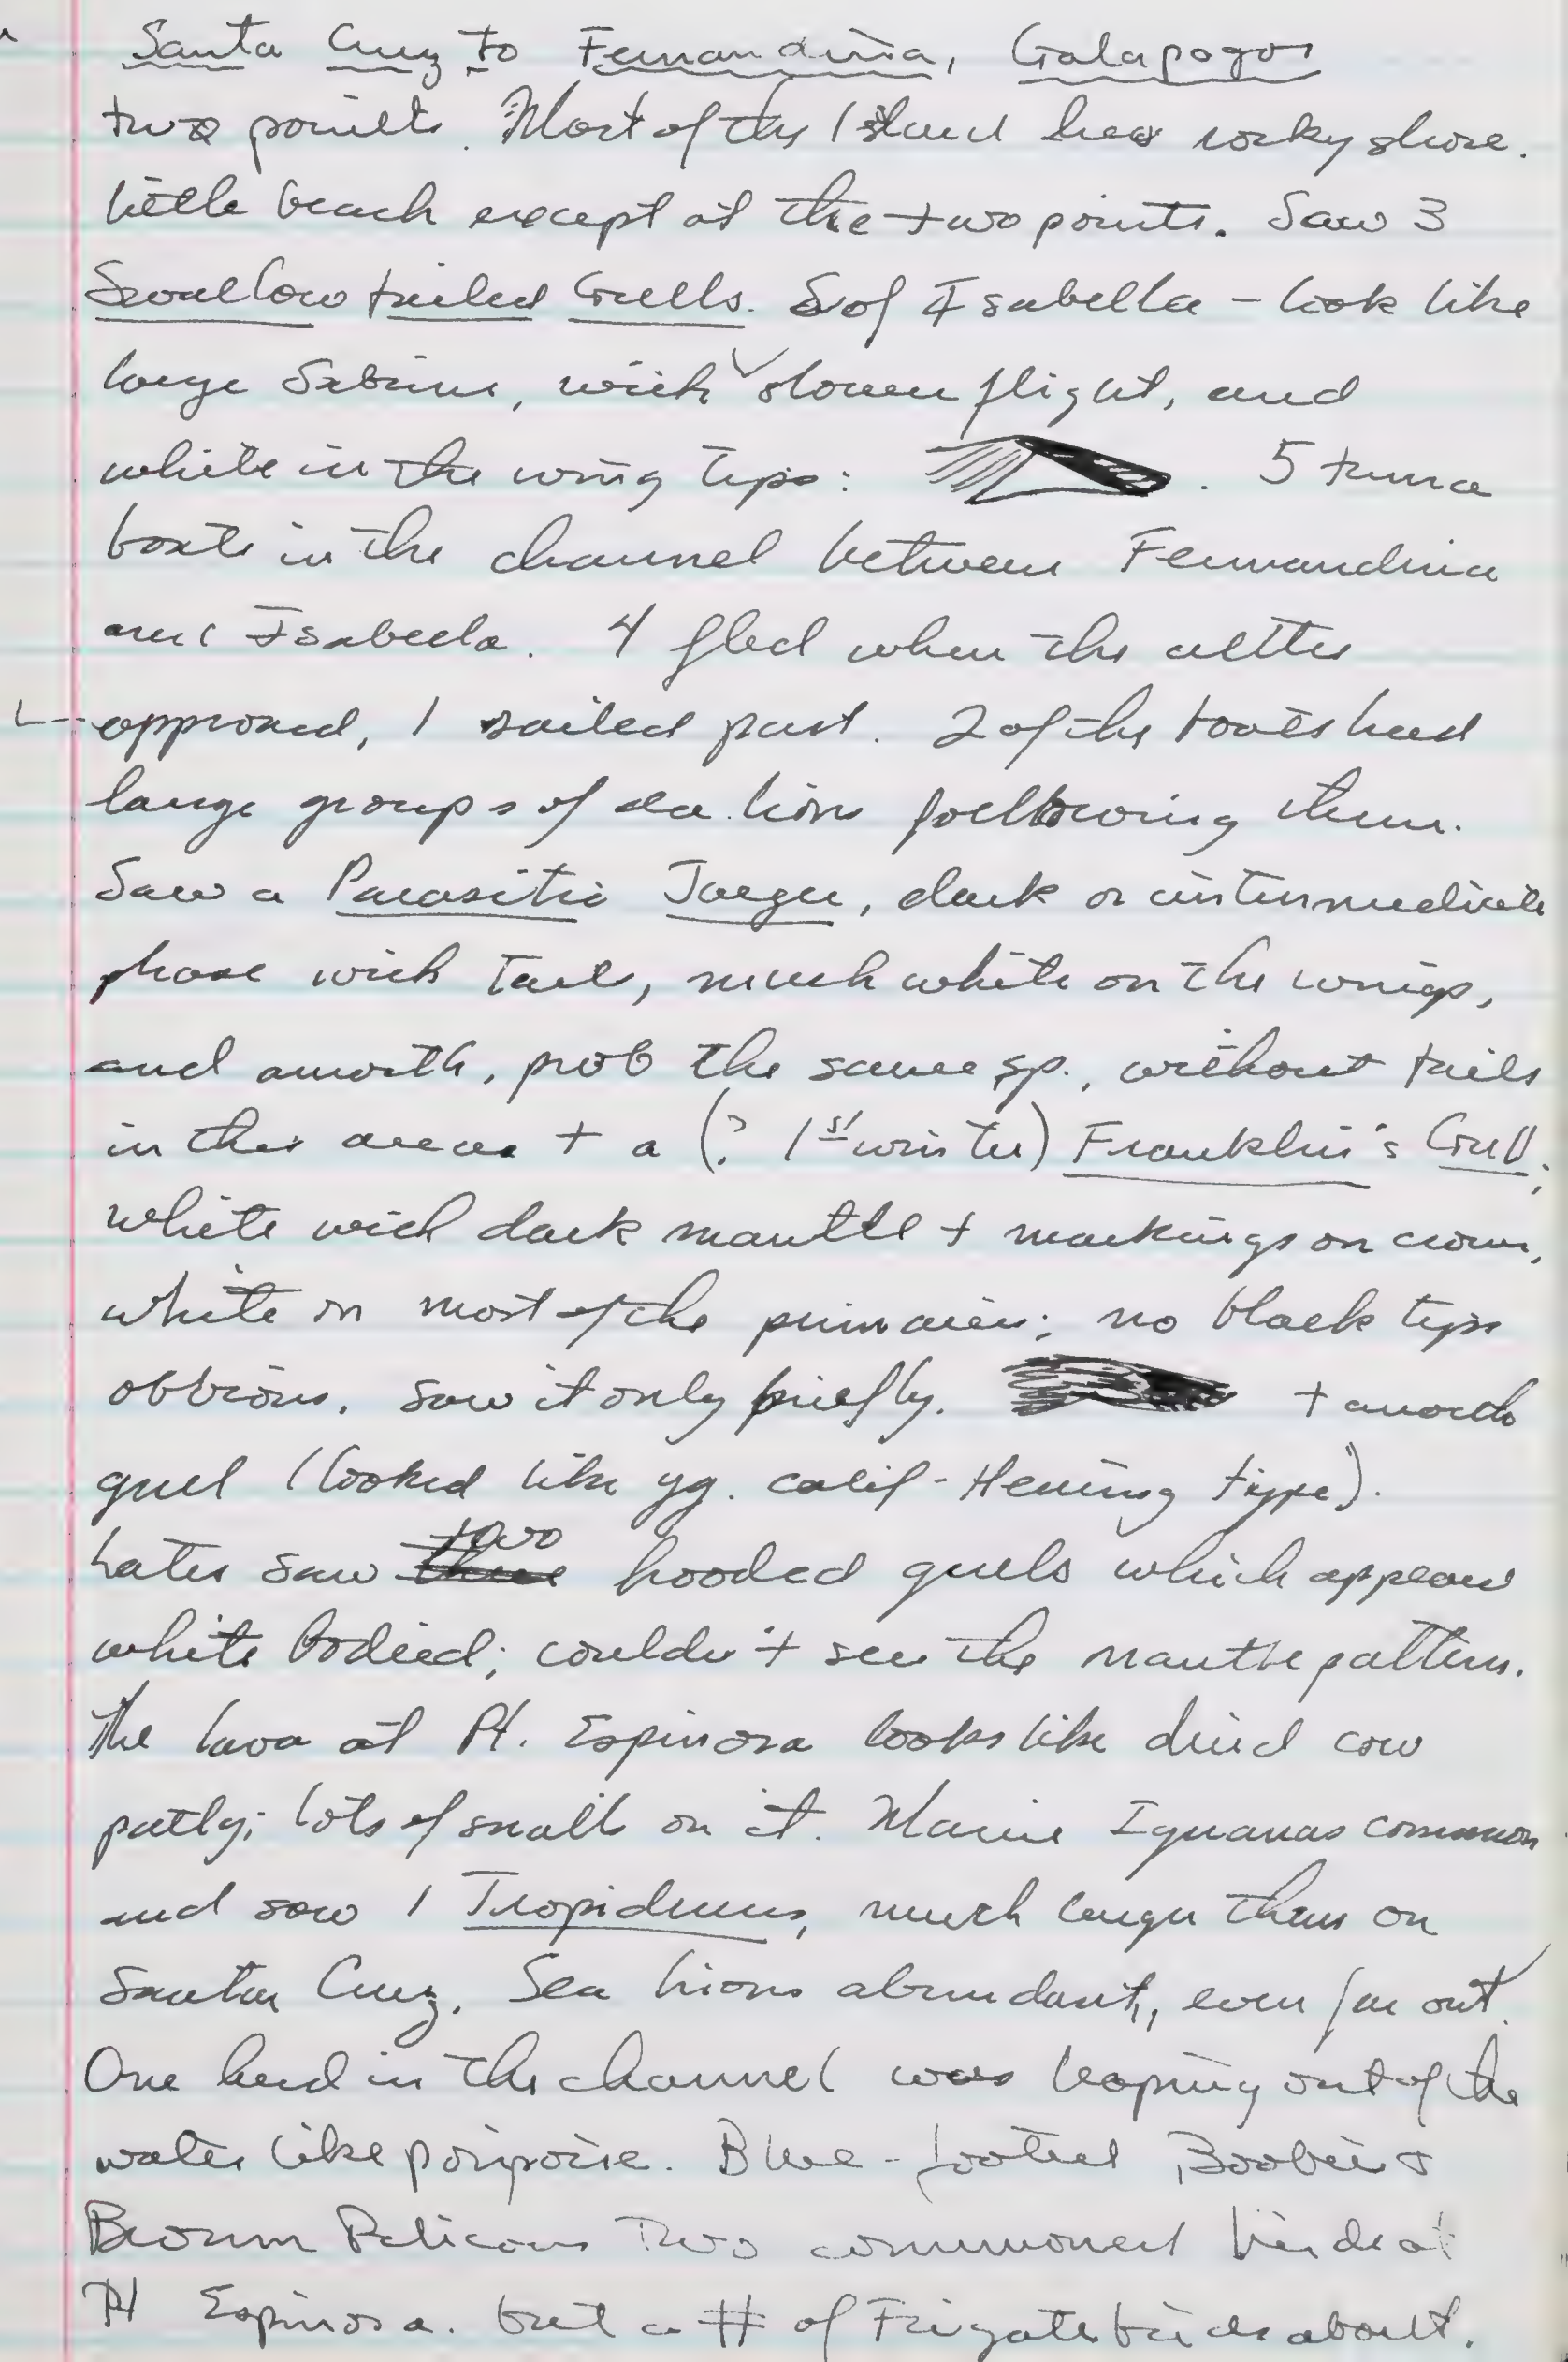 Santa Cruz to Fernandina, Galapagos
two points. Most of the Island has rocky shore.
little beach except at the two points. Saw 3
Swallow tailed Gulls. S of Isabella - look like
large Sabines, with slower flight, and
white in the wing tips: . 5 tuna
boats in the channel between Fernandina
and Isabela. 4 fled when the
approached, 1 sailed past. 2 of the boats had
large groups of sea lions following them.
Saw a Parasitic Jaeger, dark or intermediate
phase with tail, much white on the wings,
and another, prob the same sp., without tails
in this area + a (? 1st winter) Franklin's Gull;
white with dark mantle + markings on crown,
white in most of the primaries; no black tips
obvious. saw it only briefly. + another
gull (looked like yg. Calif-Herring type).
Later saw two hooded gulls which appear
white bodied; couldn't see the mantle pattern.
The lava at Pt. Espinosa looks like dried cow
patty; lots of small on it. Marine Iguanas common
and saw 1 Tropidurus, much larger than on
Santa Cruz. Sea lions abundant, even far out.
One herd in the channel was leaping out of the
water like porpoise. Blue-footed Boobies +
Brown Pelicans two commonest birds at
Pt Espinosa. but a # of Frigatebirds about.